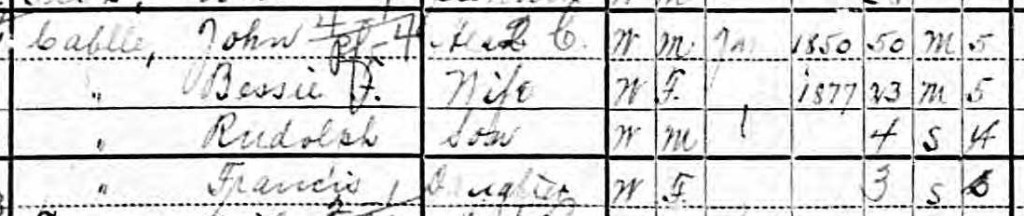 Cablle, John 4 Head C. W M Jan 1850 50 M 5
" Bessie F. Wife W F. 1877 23 M 5
" Rudolph Son W M 4 S 4
" Francis Daughter W F. 3 S